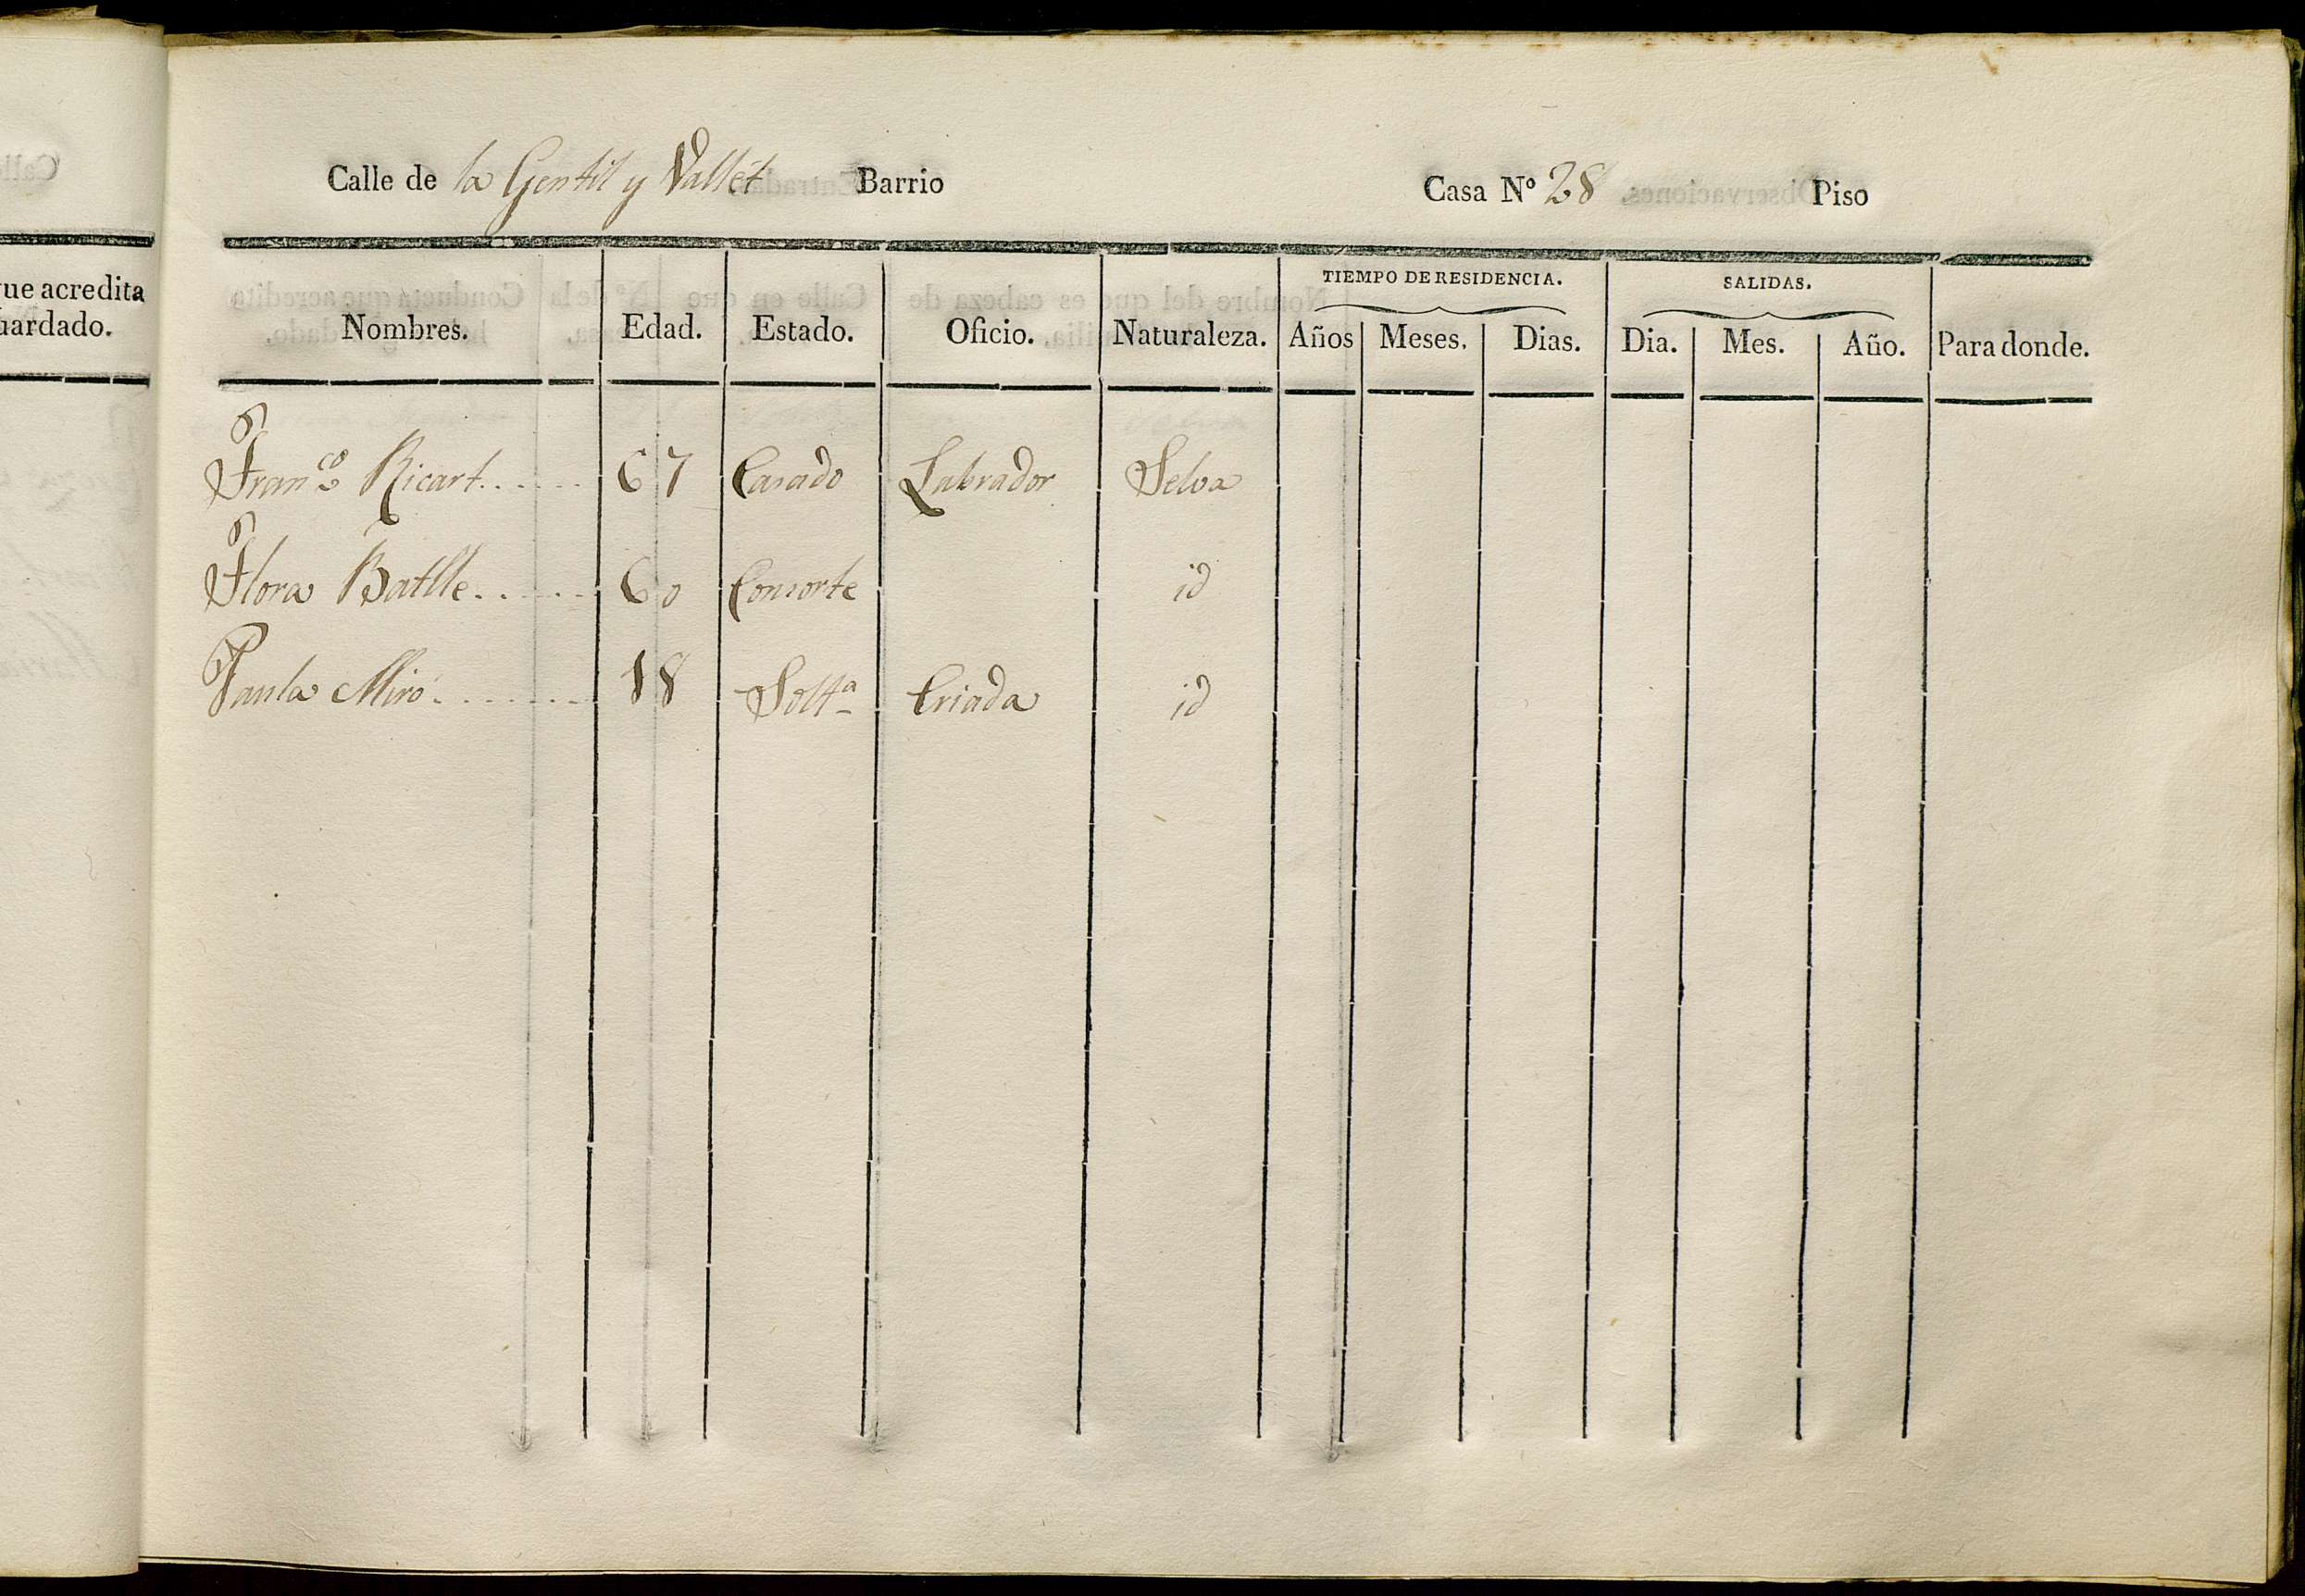 Calle de la Gentil y Vallét Barrio Casa Nº 28 Piso
ue acredita
uardado.
TIEMPO DE RESIDENCIA. SALIDAS.
Nombres. Edad. Estado. Oficio. Naturaleza. Años Meses. Dias. Dia. Mes. Año. Para donde.
Franco Ricart...... 67 Casado Labrador Selva
Flora Batlle...... 60 Consorte id
Paula Miró........ 18 Solta Criada id